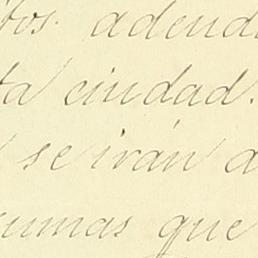 tos. adend
ta ciudad.
se irán a
sumas que